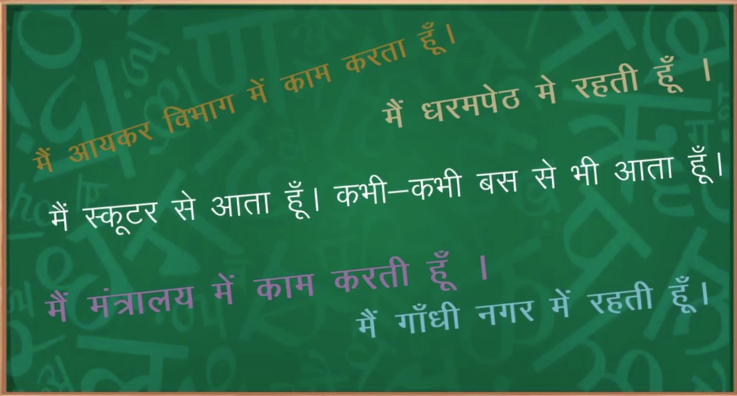 मैं आयकर विभाग में काम करता हूँ।
मैं धरमपेठ मे रहती हूँ ।
मैं स्कूटर से आता हूँ। कभी–कभी बस से भी आता हूँ।
मैं मंत्रालय में काम करती हूँ ।
मैं गाँधी नगर में रहती हूँ।